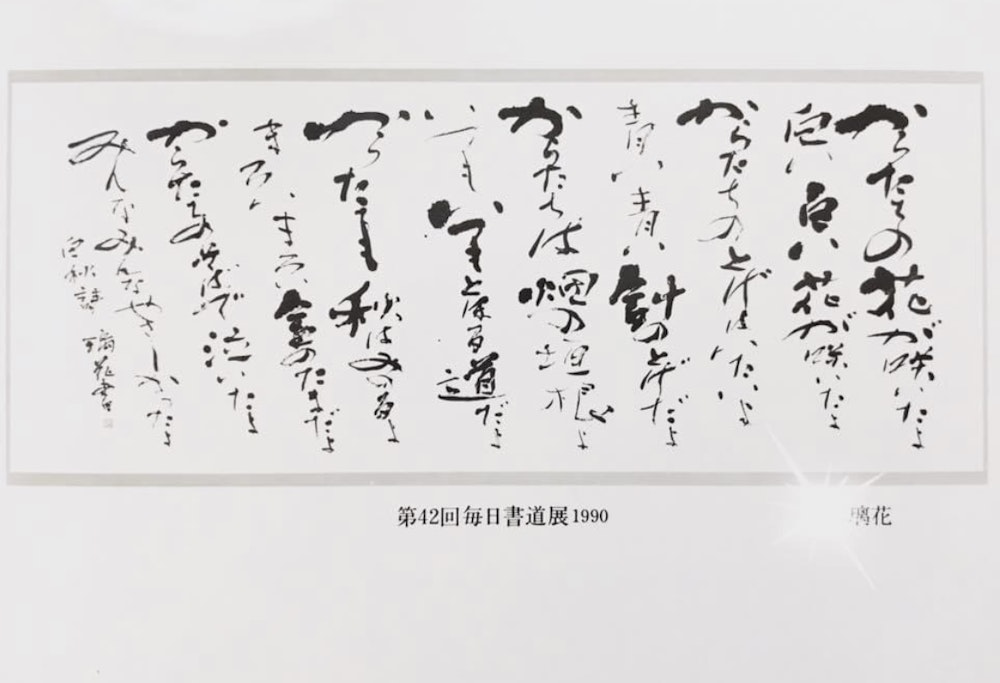 からたちの花が咲いたよ
白い白い花が咲いたよ
からたちのとげはいたいよ
青い青い針のとげだよ
からたちは畑の垣根よ
いつもいつもとほる道だよ
からたちも秋はみのるよ
まろいまろい金のたまだよ
からたちのそばで泣いたよ
みんなみんなやさしかつたよ
白秋詩 璃花書
第42回毎日書道展1990
璃花